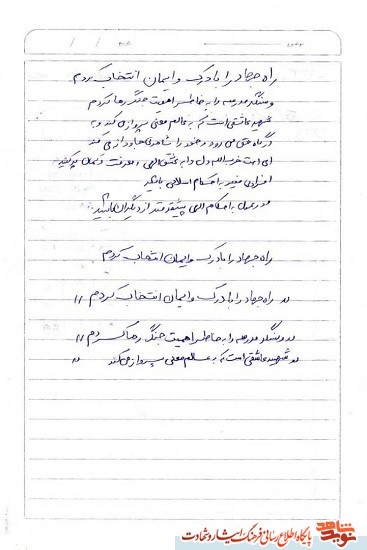 راه جهاد را با درک و ایمان انتخاب کردم
و سنگر مدرسه را به خاطر اهمیت جنگ رها کردم
شهید عاشقی است که به عالم معنی پرواز می کند و به
درگاه حق می رود و خود را شاهدی جاودان می کند
ای امت حزب الله دل را به عشق الهی و معرفت
افرادی مقید به احکام اسلامی باشید
و در عمل به احکام الهی پیشقدمتر از دیگران باشید
راه جهاد را با درک و ایمان انتخاب کردم
راه جهاد را با درک و ایمان انتخاب کردم //
و سنگر مدرسه را به خاطر اهمیت جنگ رها کردم //
شهید عاشقی است که به عالم معنی پرواز می کند //
نوید شاهد پایگاه اطلاع رسانی فرهنگ ایثار و شهادت